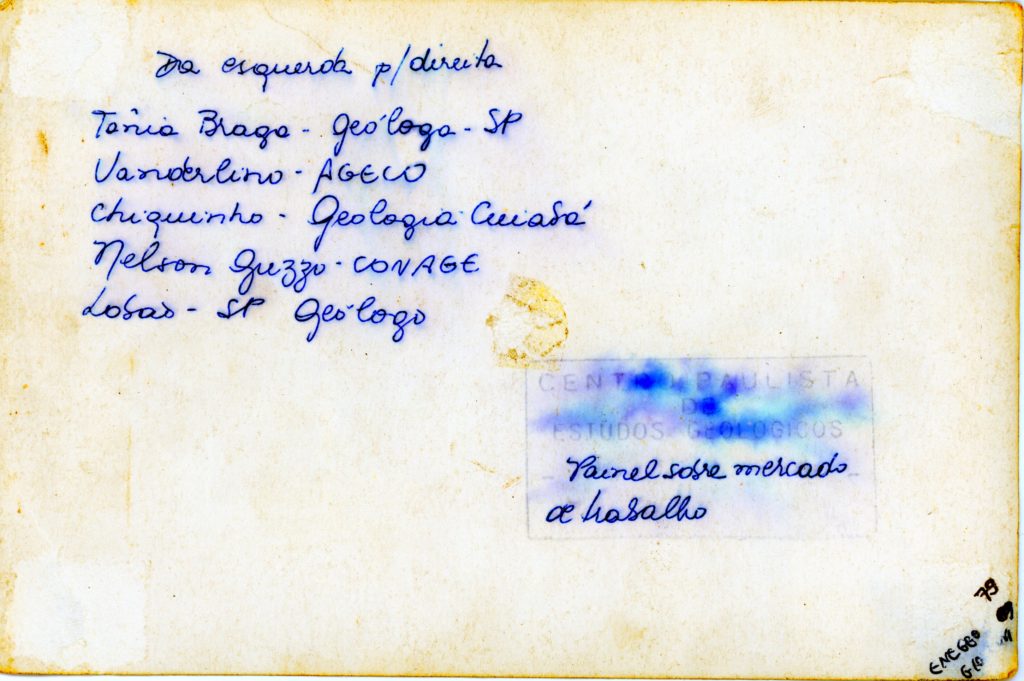 Da esquerda p/direita
Tânia Braga - Geóloga - SP
Vanderlino - AGECO
Chiquinho - Geologia Cuiabá
Nelson Guzzo - CONAGE
Lobão - SP Geólogo
CENTRO PAULISTA
DE
ESTUDOS GEOLÓGICOS
Painel sobre mercado
de trabalho
79